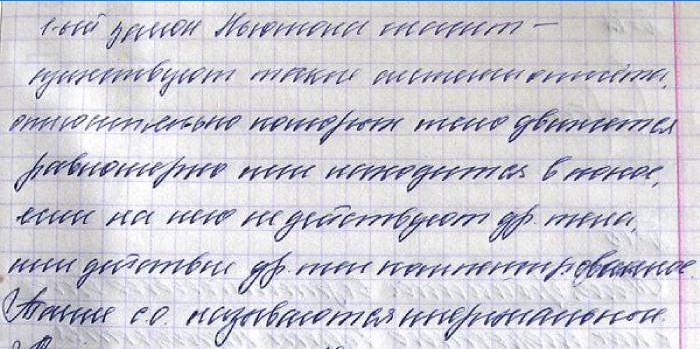 1-ый закон Ньютона гласит -
существуют такие системы отсчёта,
относительно которых тело движется
равномерно или находится в покое,
если на него не действуют др. тела,
или действие др. тел компенсированное.
Такие с.о. называются инерциальной.